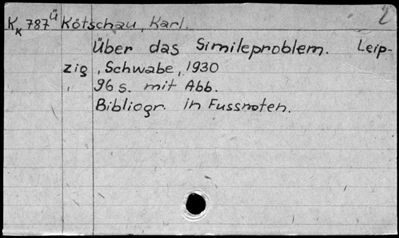 2
Kk 787ü Kötschau, Karl.
Über das Simileproblem. Leip-
zig, Schwabe, 1930
96 s. mit Abb.
Bibliogr. in Fussnoten.